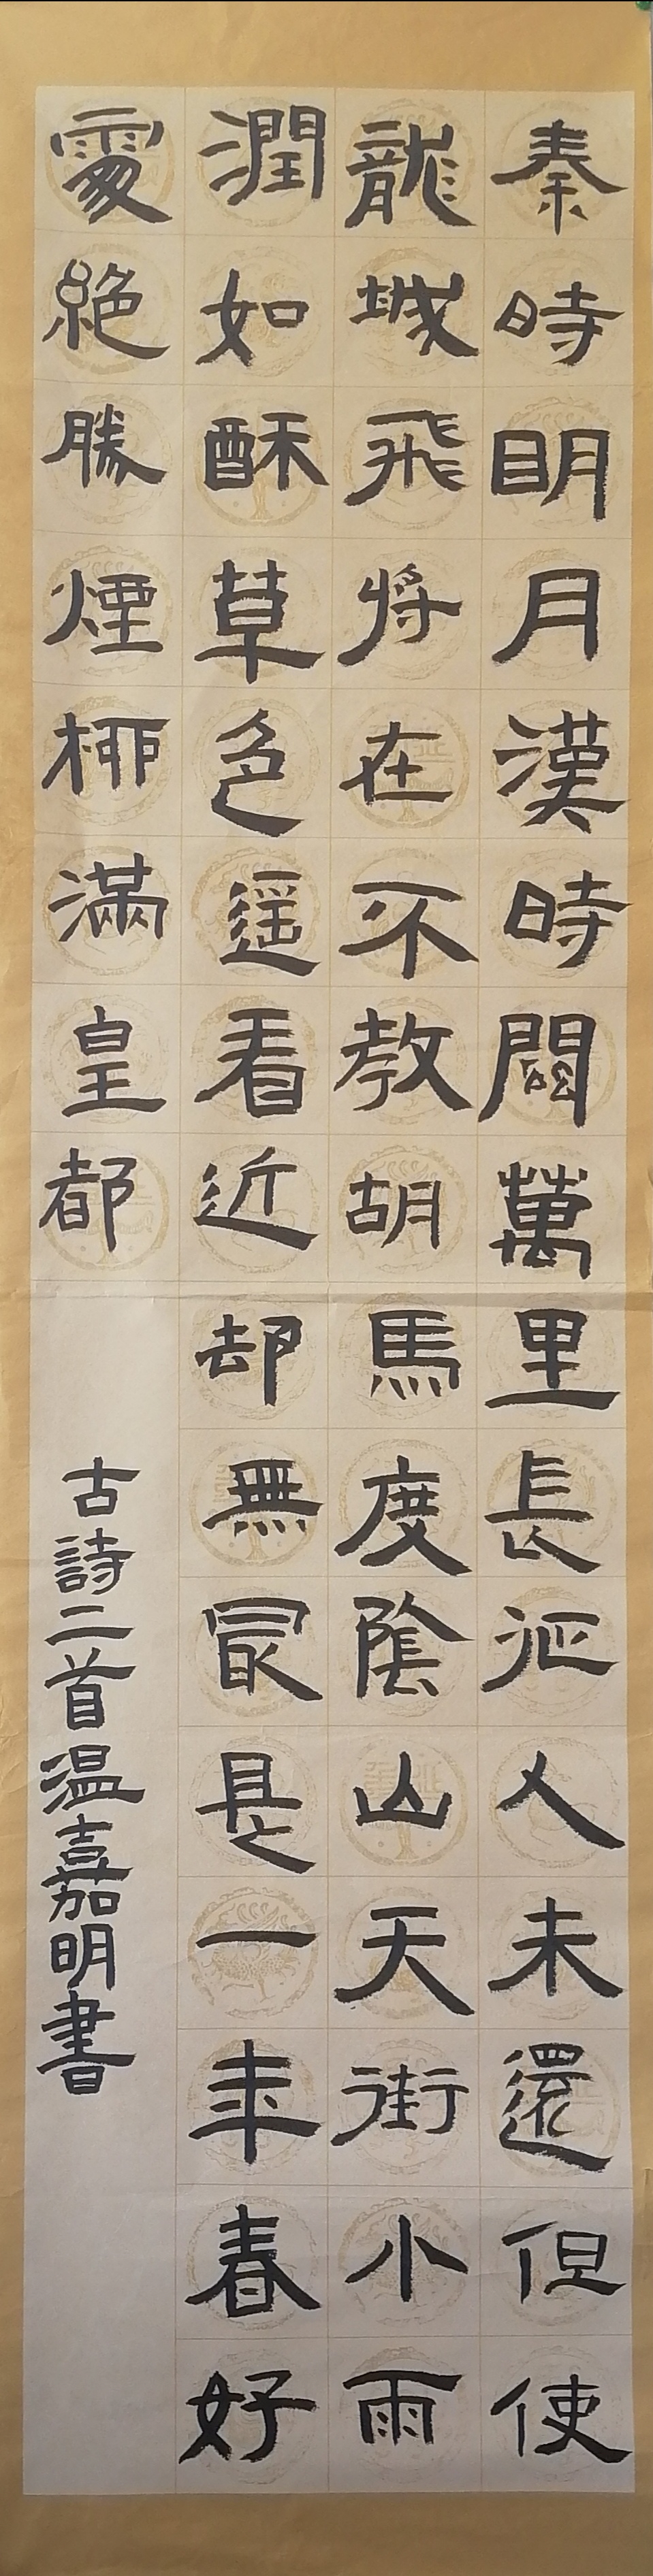 秦時明月漢時關萬里長征人未還但使
龍城飛將在不教胡馬度陰山天街小雨
潤如酥草色遥看近却無冣是一年春好
處絶勝煙柳滿皇都
古詩二首温嘉明書